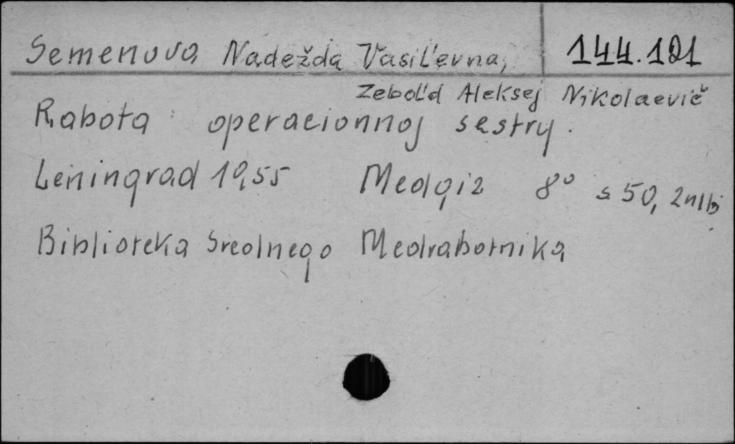 Semenova Nadežda Vasil'evna, 144.121
Zebol'd Aleksej Nikolaevič
Rabota operacionnoj sestry.
Leningrad 1955 Medgiz 8° s 50, 2nlb
Biblioteka Srednego Medrabotnika